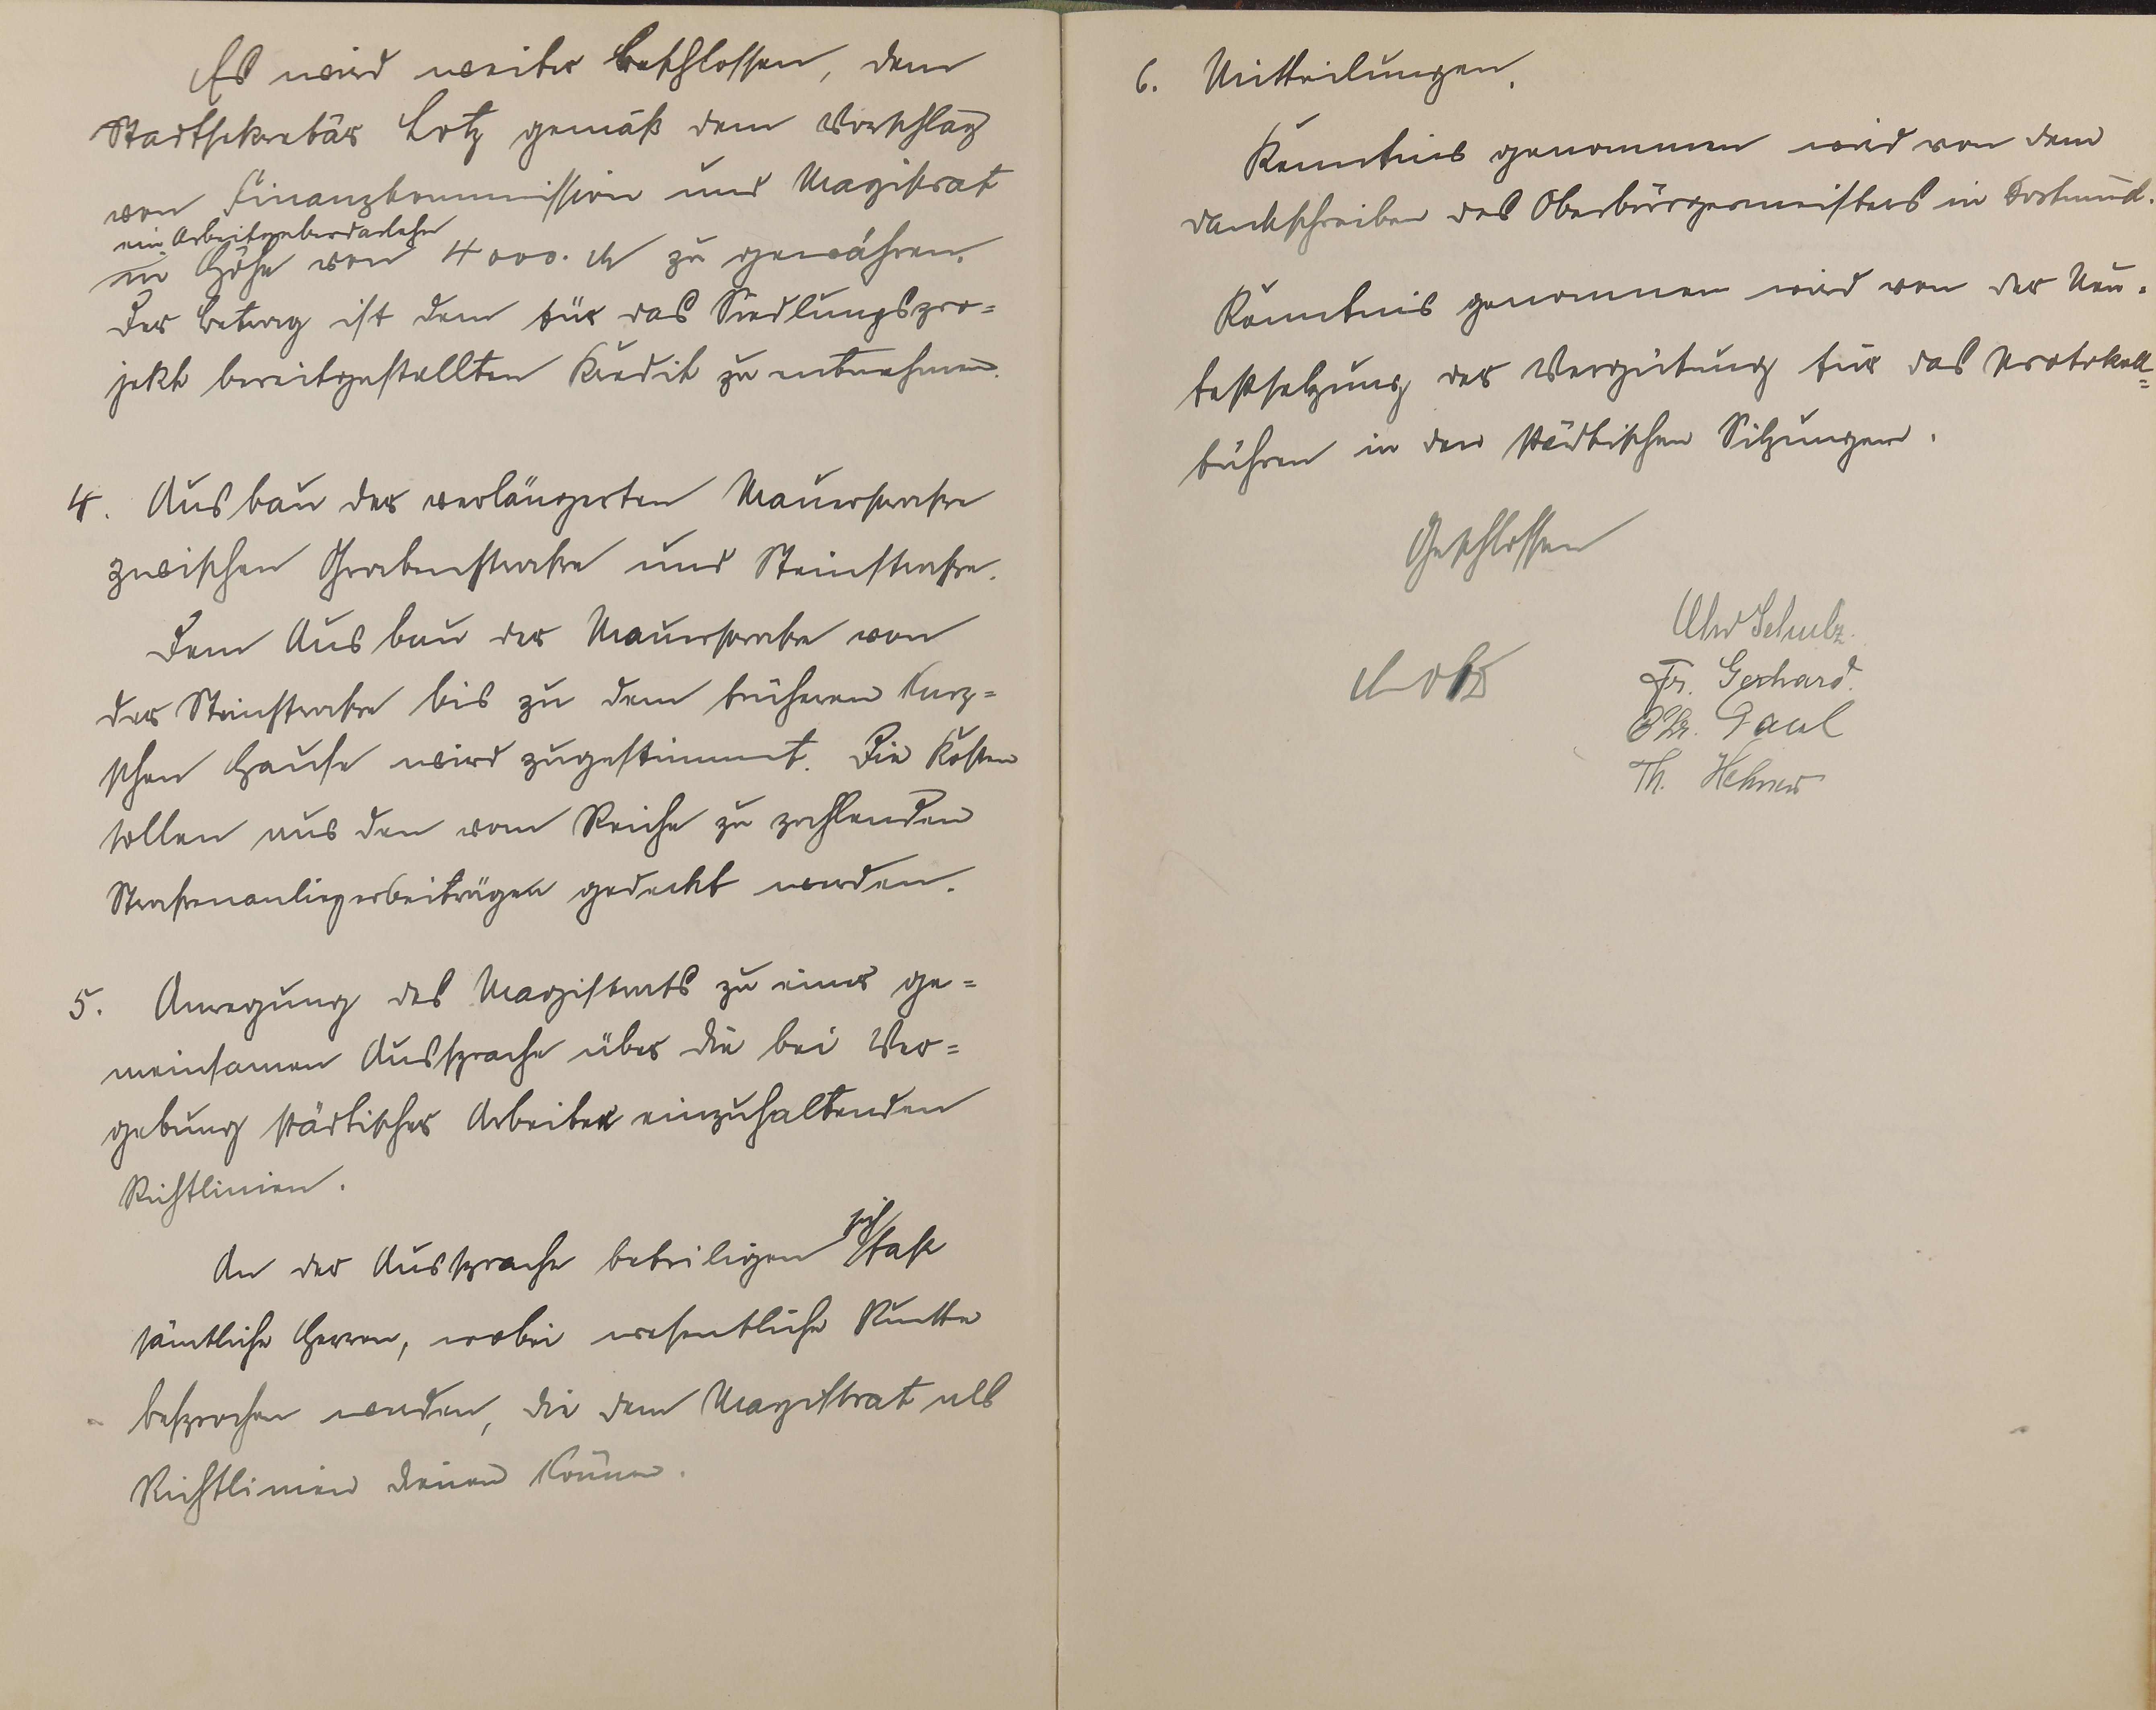 Es wird weiter beschlossen, dem
Stadtsekretär Lotz gemäß dem Vorschlag
von Finanzkommission und Magistrat
ein Arbeitgeberdarlehn
in Höhe von 4000. M zu gewähren.
Der Betrag ist dem für das Siedlungspro=
jekt bereitgestellten Kredit zu entnehmen.
4. Ausbau der verlängerten Mauerstraße
zwischen Grabenstraße und Steinstraße.
Dem Ausbau der Mauerstraße von
der Steinstraße bis zu dem früheren Kurz=
schen Hause wird zugestimmt. Die Kosten
sollen aus den vom Reiche zu zahlenden
Straßenanliegerbeiträgen gedeckt werden.
5. Anregung des Magistrats zu einer ge=
meinsamen Aussprache über die bei Ver=
gebung städtischer Arbeiten einzuhaltenden
Richtlinien.
An der Aussprache beteiligen sich fast
sämtliche Herren, wobei wesentliche Punkte
besprochen werden, die dem Magistrat als
Richtlinien dienen können.
6. Mitteilungen.
Kenntnis genommen wird von dem
Dankschreiben des Oberbürgermeisters in Dortmund.
Kenntnis genommen wird von der Neu=
festsetzung der Vergütung für das Protokoll=
führen in den städtischen Sitzungen.
Geschlossen
Schulz.
Lotz
Fr. Gerhard.
Chr. Paul
Th. Hehner